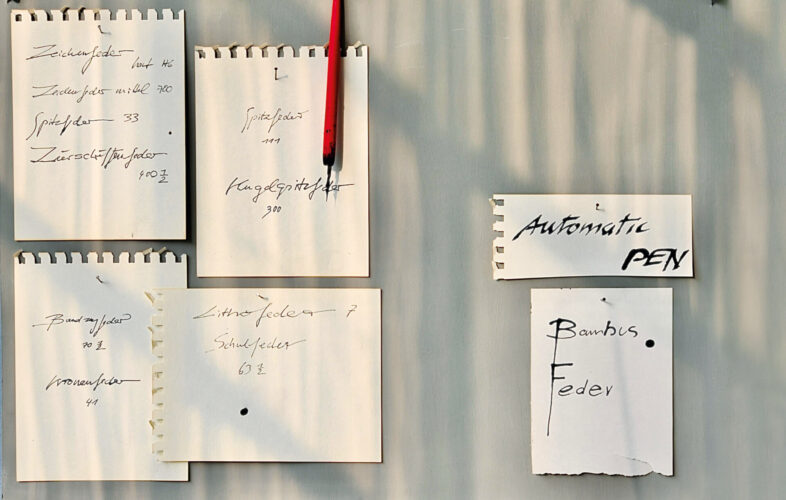 Zeichenfeder
hart H6
Zeichenfeder mittel 700
Spitzfeder 33
Zierschriftenfeder
400 1/2
Spitzfeder
111
Kugelspitzfeder
300
Bandzugfeder
70 1/2
Kronenfeder
41
Lithofeder 7
Schulfeder
63 1/2
Automatic
PEN
Bambus
Feder